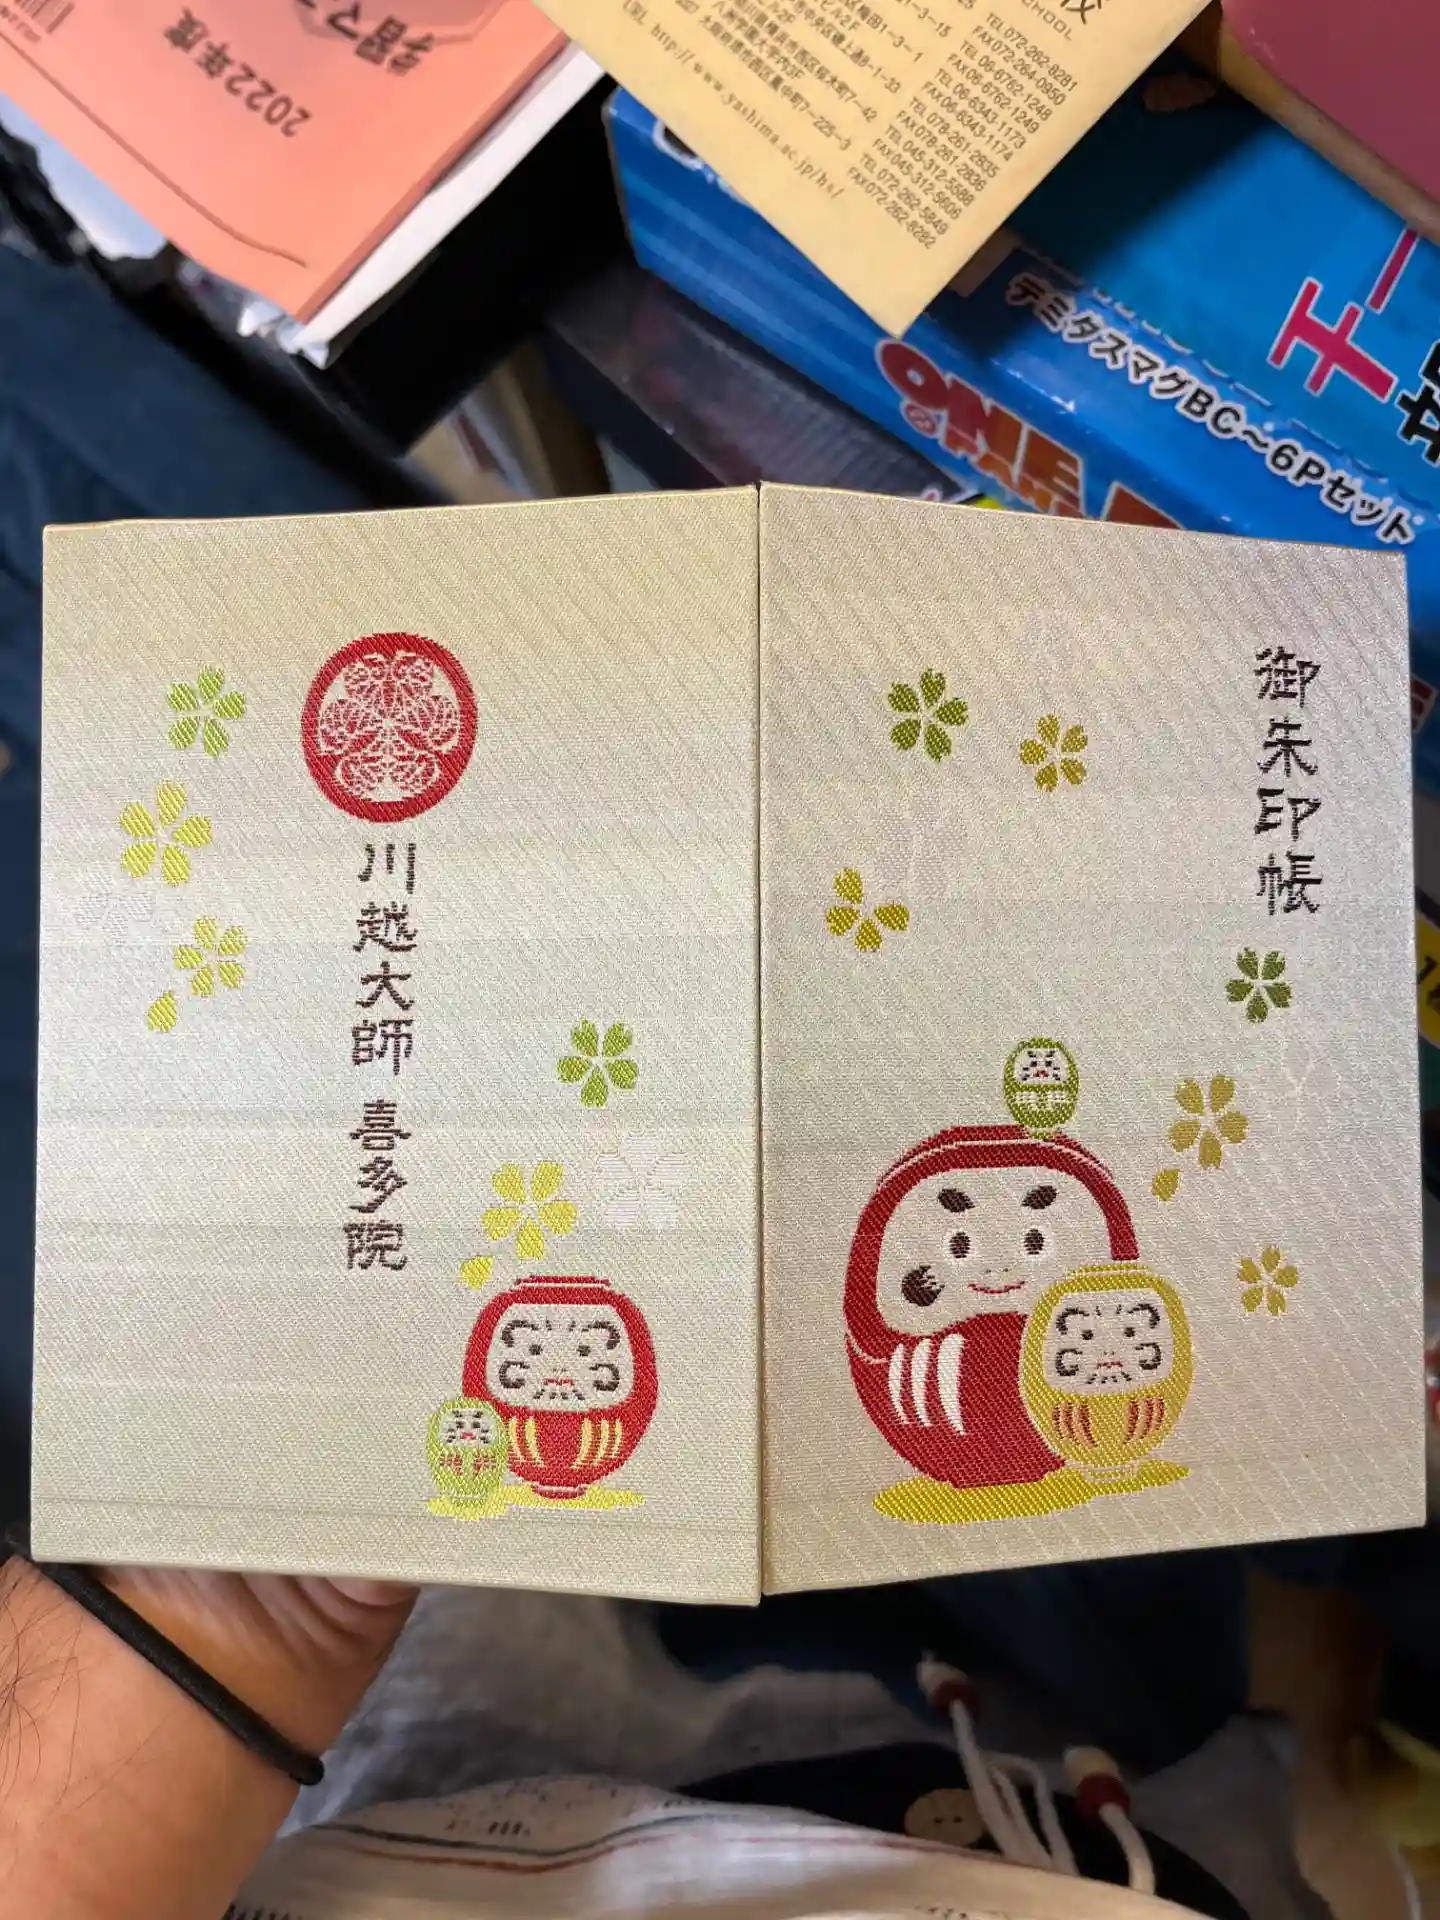 2022年度
学習マ
校
SCHOOL
TEL072-262-8281
FAX072-264-0950
TEL06-6762-1248
FAX06-6762-1249
TEL06-6343-1173
FAX06-6343-1174
TEL078-261-2835
FAX078-261-2836
TEL045-312-5588
FAX045-312-5606
TEL072-262-5849
FAX072-262-8282
URL http://www.yashima.ac.jp/hs/
デミタスマグBC～6Pセット
ONE
川越大師 喜多院
御朱印帳